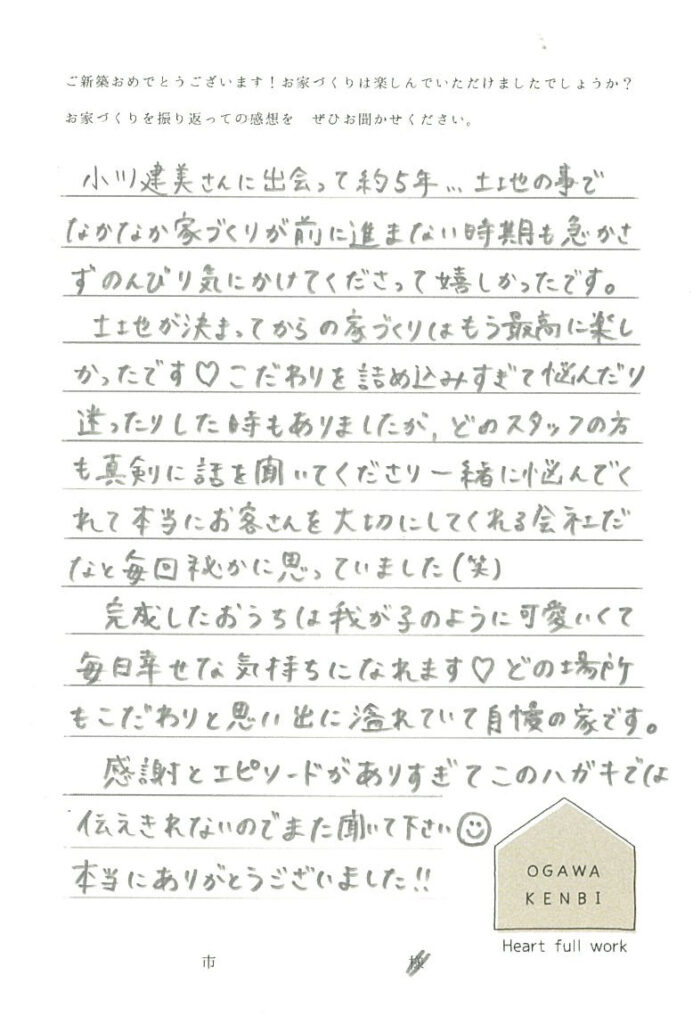 ご新築おめでとうございます！お家づくりは楽しんでいただけましたでしょうか？
お家づくりを振り返っての感想を　ぜひお聞かせください。
小川建美さんに出会って約5年...土地の事で
なかなか家づくりが前に進まない時期も急かさ
ずのんびり気にかけてくださって嬉しかったです。
土地が決まってからの家づくりはもう最高に楽し
かったです♡こだわりを詰め込みすぎて悩んだり
迷ったりした時もありましたが、どのスタッフの方
も真剣に話を聞いてくださり一緒に悩んでく
れて本当にお客さんを大切にしてくれる会社だ
なと毎回秘かに思っていました(笑)
完成したおうちは我が子のように可愛いくて
毎日幸せな気持ちになれます♡どの場所
もこだわりと思い出に溢れていて自慢の家です。
感謝とエピソードがありすぎてこのハガキでは
伝えきれないのでまた聞いて下さい☺
本当にありがとうございました!!
OGAWA
KENBI
Heart full work
市